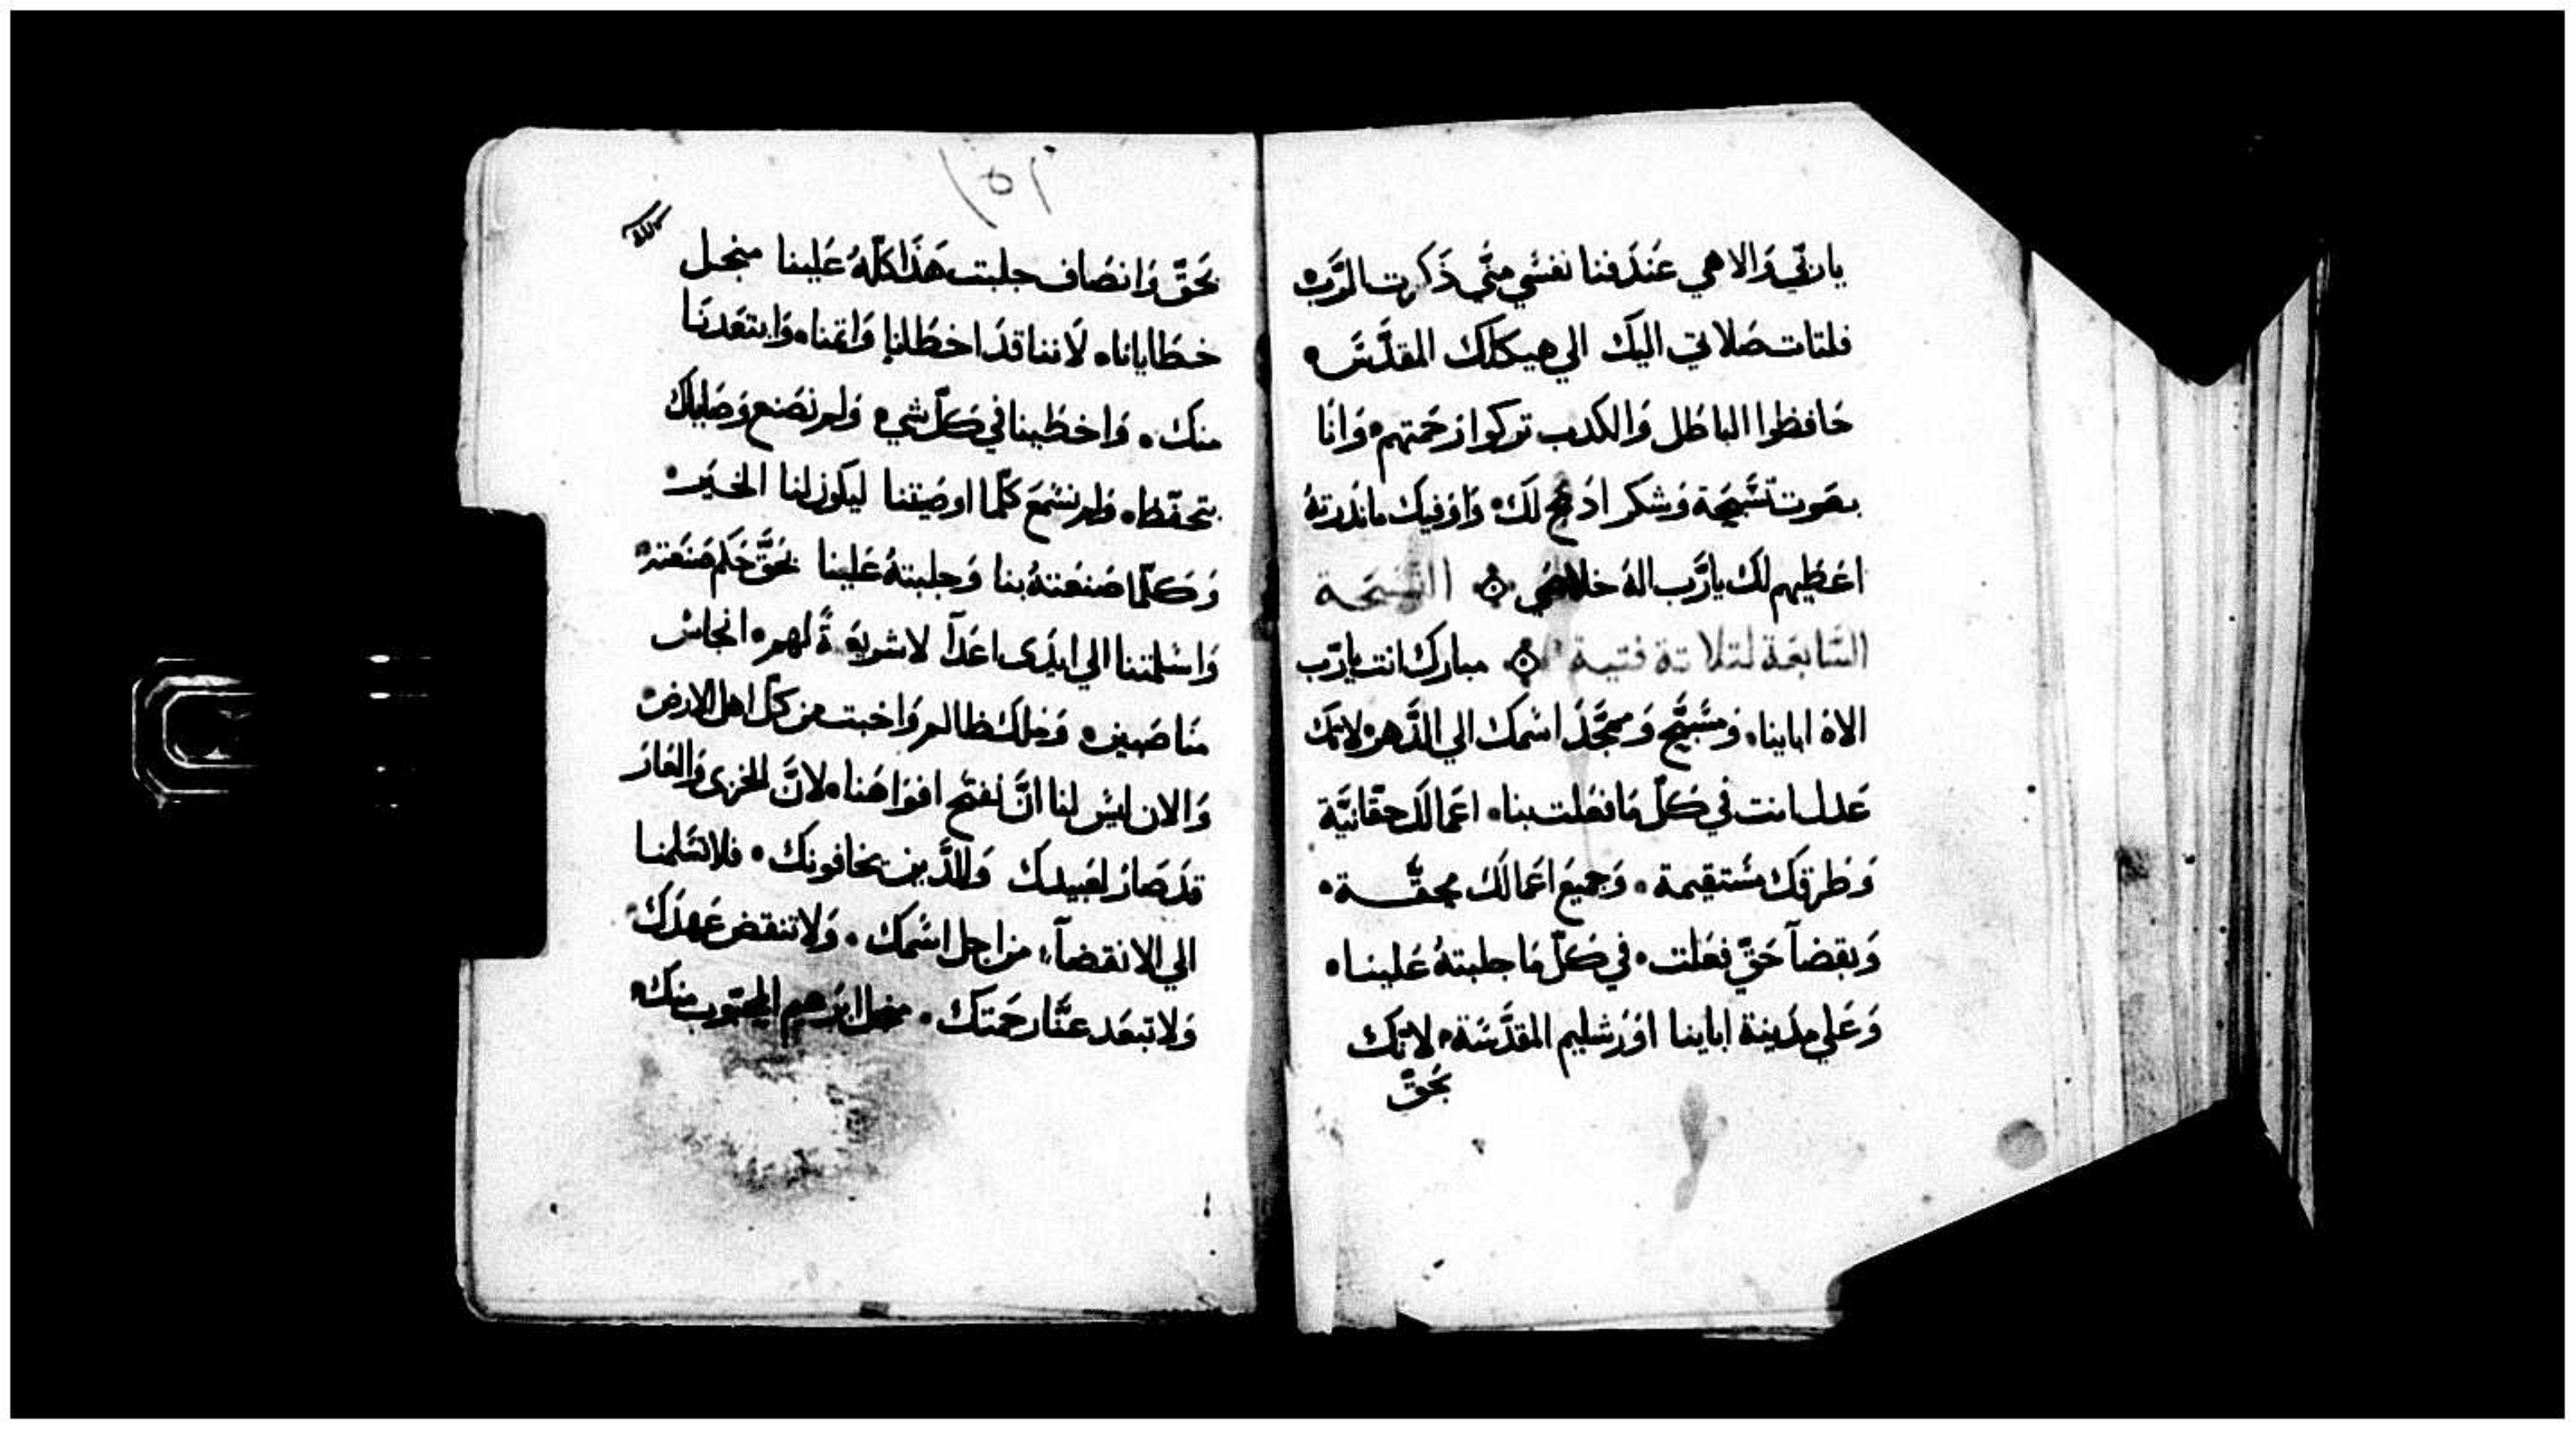 يا ربّي وَالاهي عَندَ فنا نفسَي منّي ذَكرت الرَّب
فلتات صَلاتي اليَك الي هيكلك المقدَّسَ
حَافظوا الباطل وَالكدب تركوا رَحمَتهم وَانَا
بصَوت تسَّبِحَة وَشكر ادبح لَك وَاوَفيك ما نَدرتهُ
اعَطيهم لك يا رَّب الهُ خلاصَي التَّسبحَة
السَّابعَة لتلاتة فتية مبارك انت يا رَّب
الاهَ اباينا وَمسَّبَح وَممجَّدَ اسَمك الي الدَّهر لانَّك
عَدل انت في كلّ مَا فعَلت بنا اعَمالَك حقّانيَّة
وَطرقك مسَتقيمة وَجميعَ اعَمالَك محقَّـة
وَبقضآ حَقّ فعَلت في كلّ مَا جلبتهُ عَلينا
وَعَلي مدَينة اباينا اوَرشليم المقدَّسَة لانَّك
بحَقّ
بحَقّ وَانصَاف جلبت هَذَا كلّهُ عَلينا منجل
خطَايانا لَاننا قدَ اخطَانا وَاتمنا وَابتعَدنَا
منك وَاخطَينا في كلّ شي وَلم نصَنع وَصَاياك
بتحفّظ وَلم نسَمعَ كلّما اوصَيتنا ليكون لنا الخَير
وَكلّما صَنعَتهُ بنا وَجلبتهُ عَلينا بحَقَّ حَكم صَنعَته
وَاسَلمتنا الي ايدَى اعَدآ لا شريعَةً لهم انجاس
منَاصَبين وَملك ظالم وَاخبت من كلّ اهل الارض
وَالان ليسَ لنا انَّ نفتَح افوَاهَنا لانَّ الخزى وَالعَار
قدَ صَار لعَبيدك وَللدَّين يخافونك فلا تسَلمنا
الي الانقضآء من اجل اسَمك وَلا تنقض عَهدَك
وَلا تبعَد عنَّا رحَمتك منجل ابرَهيم المحبوب منك